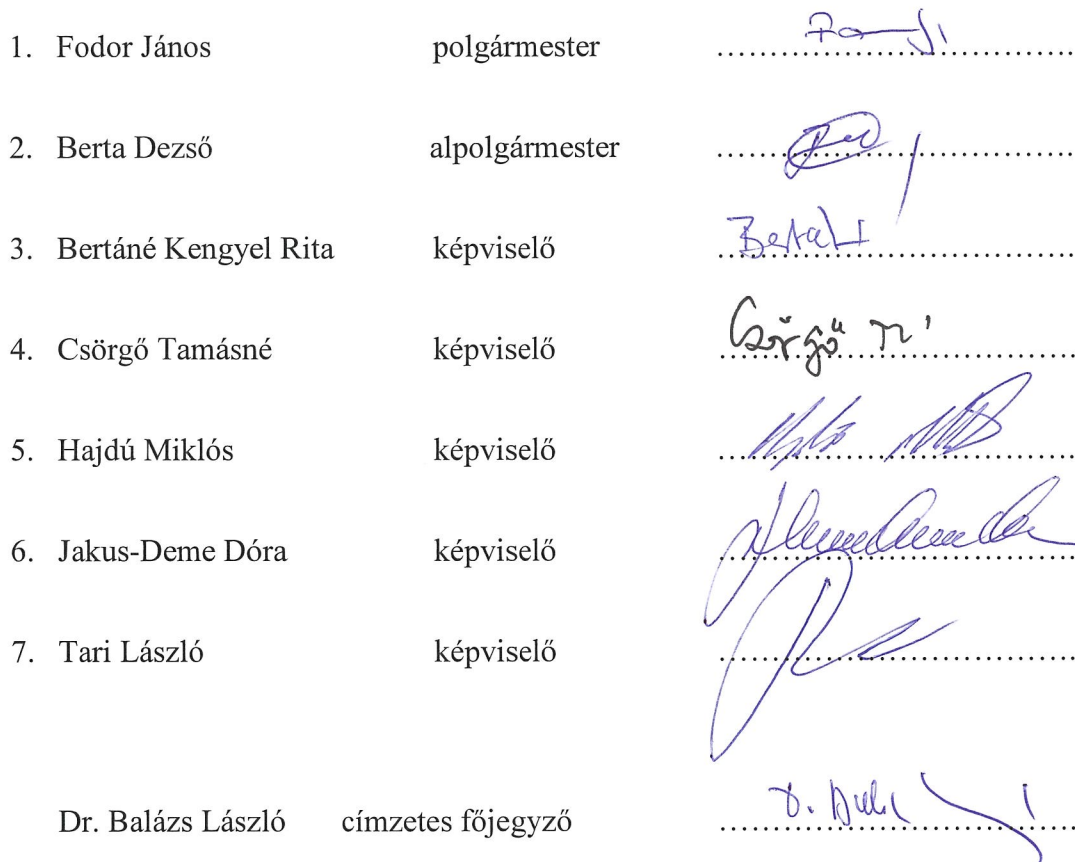 1. Fodor János polgármester ........................
2. Berta Dezső alpolgármester ........................
3. Bertáné Kengyel Rita képviselő ........................
4. Csörgő Tamásné képviselő Csörgő T
5. Hajdú Miklós képviselő ........................
6. Jakus-Deme Dóra képviselő ........................
7. Tari László képviselő ........................
Dr. Balázs László címzetes főjegyző ........................